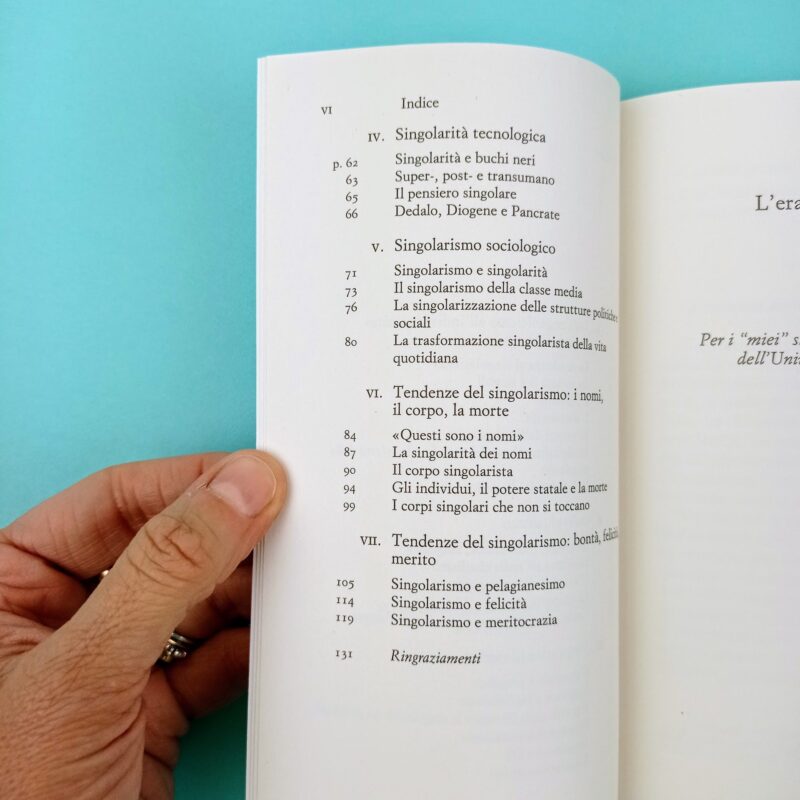 VI Indice
IV. Singolarità tecnologica
p. 62 Singolarità e buchi neri
63 Super-, post- e transumano
65 Il pensiero singolare
66 Dedalo, Diogene e Pancrate
V. Singolarismo sociologico
71 Singolarismo e singolarità
73 Il singolarismo della classe media
76 La singolarizzazione delle strutture politiche e
sociali
80 La trasformazione singolarista della vita
quotidiana
VI. Tendenze del singolarismo: i nomi,
il corpo, la morte
84 «Questi sono i nomi»
87 La singolarità dei nomi
90 Il corpo singolarista
94 Gli individui, il potere statale e la morte
99 I corpi singolari che non si toccano
VII. Tendenze del singolarismo: bontà, felicità,
merito
105 Singolarismo e pelagianesimo
114 Singolarismo e felicità
119 Singolarismo e meritocrazia
131 Ringraziamenti
L'era
Per i "miei" s
dell'Uni